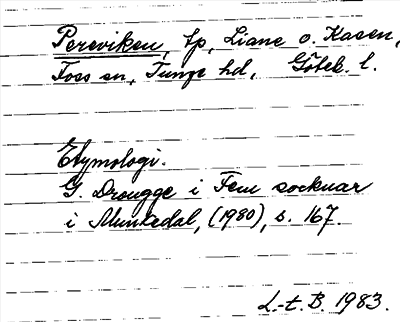 Pereviken, tp, Liane o. Kasen,
Foss sn, Tunge hd, Göteb. l.
Etymologi.
G. Drougge i Fem socknar
i Munkedal, (1980), s. 167.
L.-t. B. 1983.